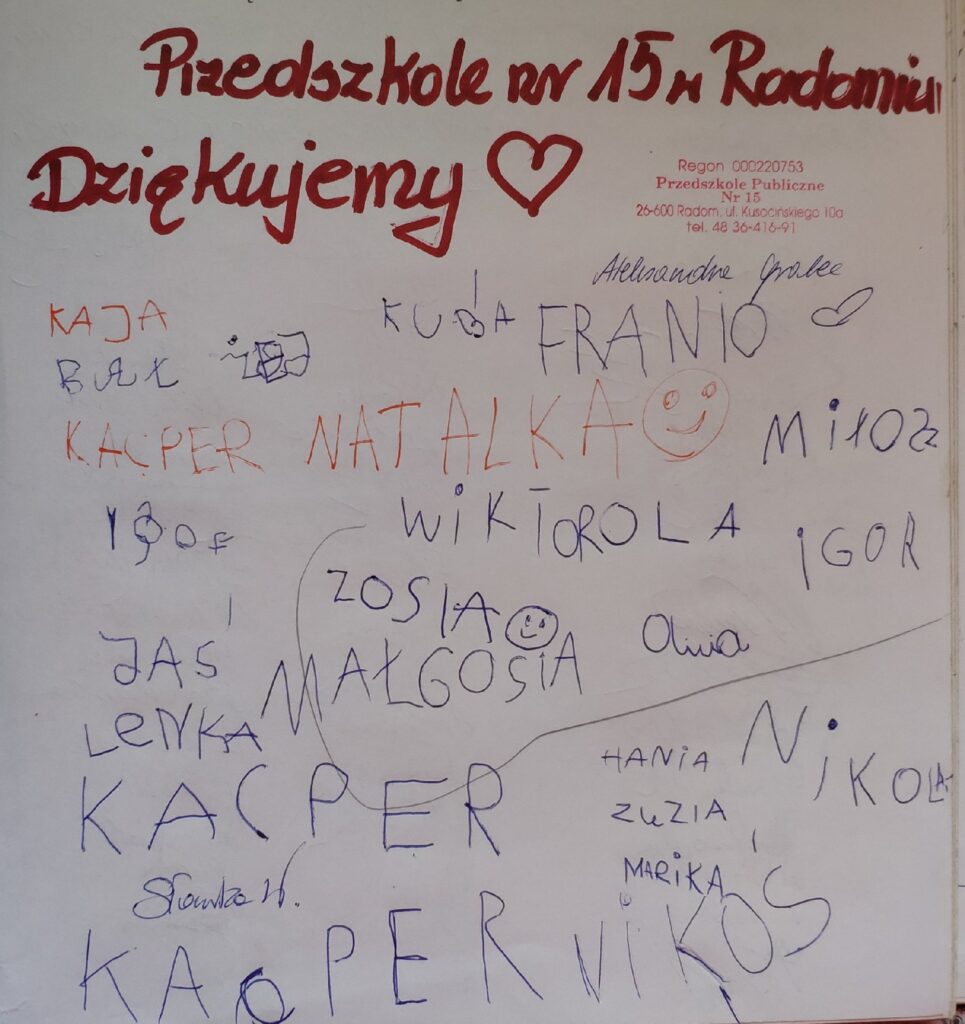 Przedszkole nr 15 w Radomiu
Dziękujemy
Regon 000220753
Przedszkole Publiczne
Nr 15
26-600 Radom, ul. Kusocińskiego 10a
tel. 48 36-416-91
Aleksandra
KAJA KUBA FRANIO
KACPER NATALKA MiŁOZZ
WiKTOROLA IGOR
ZOSIA
JAŚ MAŁGOSiA Oliwia
LENKA
KACPER HANiA NiKOLA
ZUZIA
MARiKA
KACPER NiKOŚ